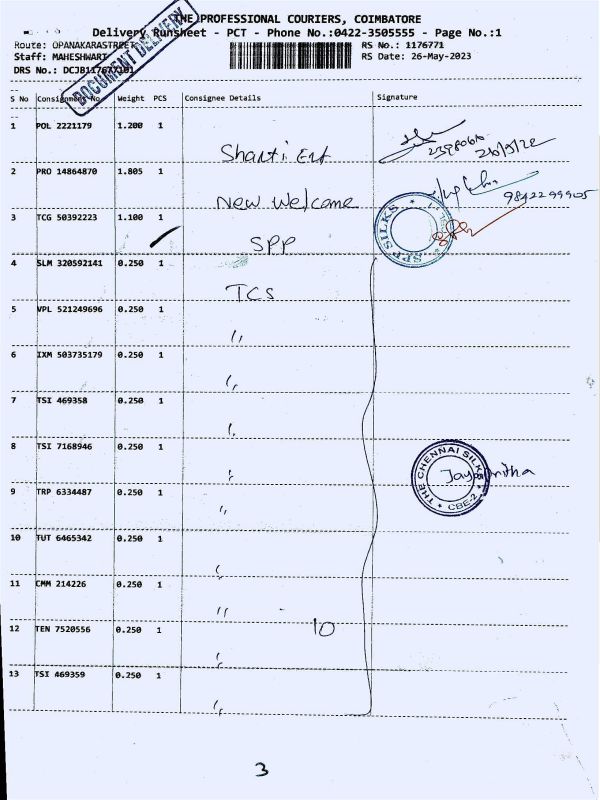 THE PROFESSIONAL COURIERS, COIMBATORE
Delivery Runsheet - PCT - Phone No.:0422-3505555 - Page No.:1
Route: OPANAKARASTREET
RS No.: 1176771
Staff: MAHESHWARI
RS Date: 26-May-2023
DRS No.: DCJB1176771
DOCUMENT DELIVERY
S No Consignment No Weight PCS Consignee Details Signature
1 POL 2221179 1.200 1 Shanti Ent
2 PRO 14864870 1.805 1 New Welcome
3 TCG 50392223 1.100 1 SPP
SPP SILKS
4 SLM 320592141 0.250 1 TCS
5 VPL 521249696 0.250 1 "
6 IXM 503735179 0.250 1 "
7 TSI 469358 0.250 1 "
8 TSI 7168946 0.250 1 "
THE CHENNAI SILKS
CBE-2
9 TRP 6334487 0.250 1 "
10 TUT 6465342 0.250 1 "
11 CMM 214226 0.250 1 "
12 TEN 7520556 0.250 1 " 10
13 TSI 469359 0.250 1 "
3